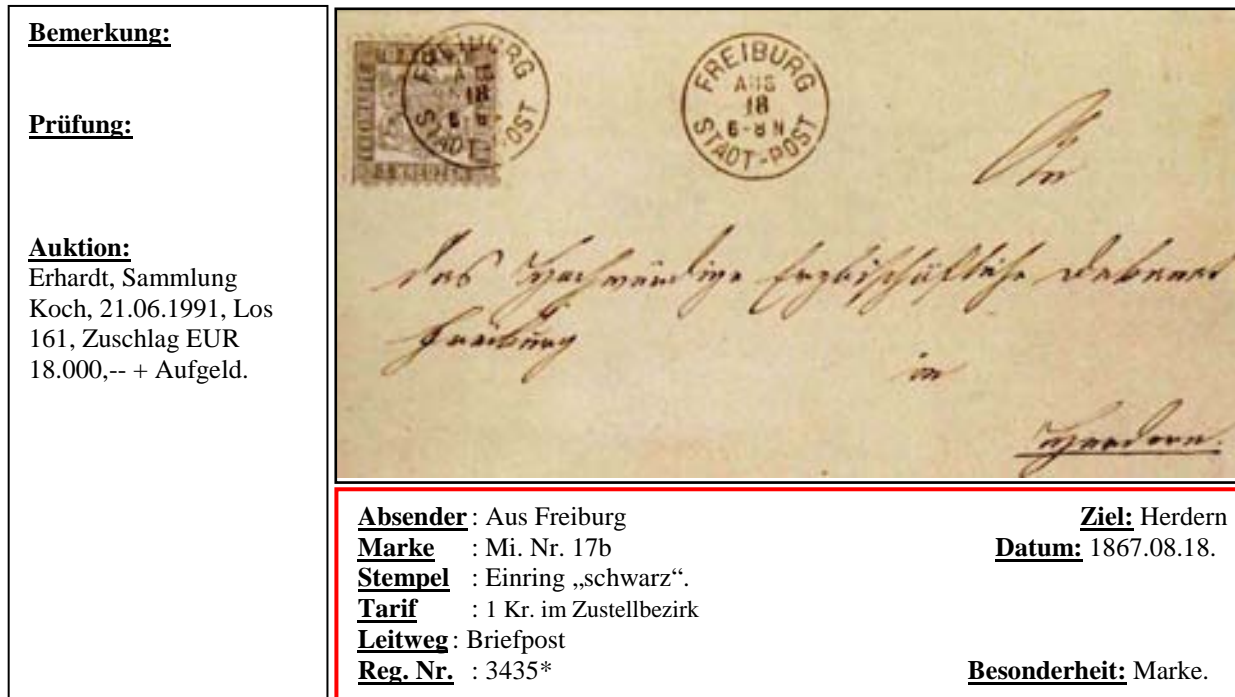 Bemerkung:
Prüfung:
Auktion:
Erhardt, Sammlung
Koch, 21.06.1991, Los
161, Zuschlag EUR
18.000,-- + Aufgeld.
FREIBURG
18
STADT-POST
FREIBURG
AUG
18
6-8 N
STADT-POST
An
das Hochwürdige Erzbischöfliche Dekanat
Freiburg
in
Herdern.
Absender : Aus Freiburg
Ziel: Herdern
Marke : Mi. Nr. 17b
Datum: 1867.08.18.
Stempel : Einring „schwarz“.
Tarif : 1 Kr. im Zustellbezirk
Leitweg : Briefpost
Reg. Nr. : 3435*
Besonderheit: Marke.